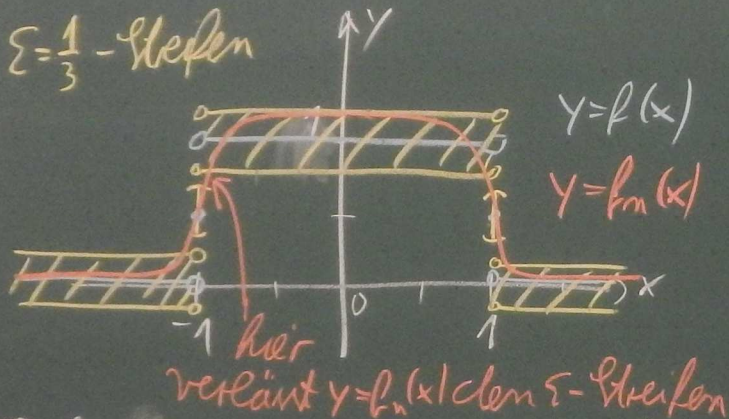 ε=1/3 - Streifen
y
y=f(x)
y=fn(x)
1
x
-1
0
1
hier
verläßt y=fn(x) den ε-Streifen